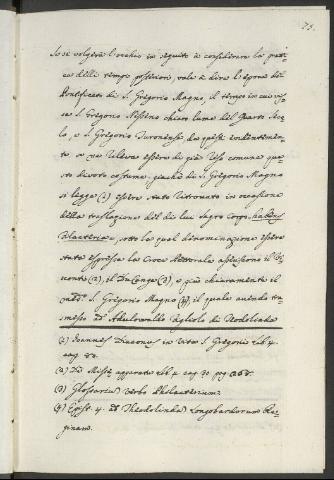 73.
Se si volgerà l'occhio in seguito a considerare la prati-
ca delli tempi posteriori, vale a dire l'epoca del
Pontificato di S. Gregorio Magno, il tempo in cui vis-
se S. Gregorio Nisseno chiaro lume del quarto seco-
lo, e S. Gregorio Turonense da questi evidentemen-
te si rileva essere di già reso comune que-
sto divoto costume, giacchè di S. Gregorio Magno
si legge (1) essere stato ritrovato in occasione
della traslazione del di lui sagro Corpo
Filacteria, sotto la qual denominazione essere
stata espressa la Croce Pettorale asseriscono il
(2), il Du Cange (3), e più chiaramente il
S. Gregorio Magno (4), il quale avendo tra-
smesso ad Adulowaldo Figliolo di Teodolinda
(1) Joannes Diaconus in vita S. Gregorii Lib. 4.
cap. 80.
(2) De Missæ apparatu Lib. 4 cap. pag. 268.
(3) Glossarium verbo Philacterium.
(4) Epist. 4. ad Theodolindam Longobardorum Re-
ginam.